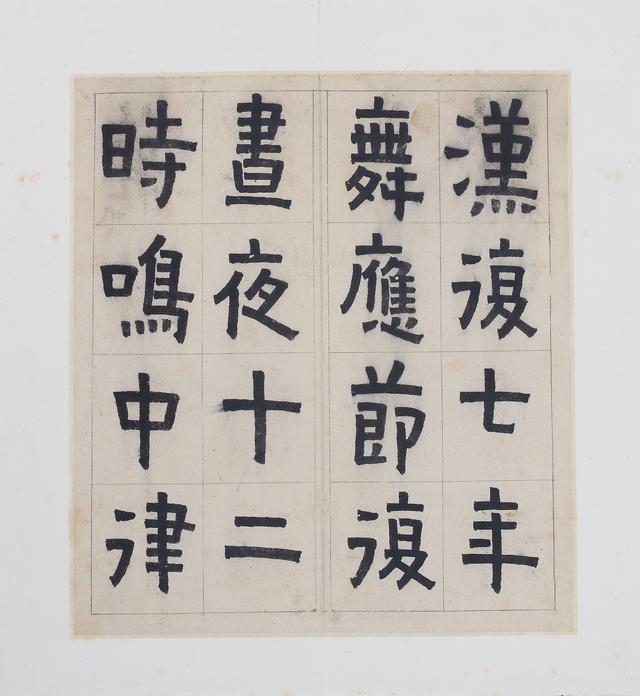 漢復七年
舞應節復
晝夜十二
時鳴中律